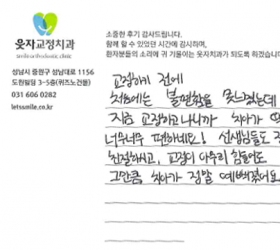 웃자교정치과
smile orthodontic clinic
성남시 중원구 성남대로 1156
도원빌딩 3~5층(위즈노건물)
031 606 0282
letssmile.co.kr
소중한 후기 감사드립니다.
함께 할 수 있었던 시간에 감사하며,
환자분들의 소리에 귀 기울이는 웃자교정치과가 되도록 하겠습니다
교정하기 전에
처음에는 불편함을 못느꼈는데
지금 교정하고나니까 치아가 딱
너무너무 편하네요! 선생님들도
친절하시고, 교정이 아무리 힘들어도
그만큼 치아가 정말 예뻐졌어요